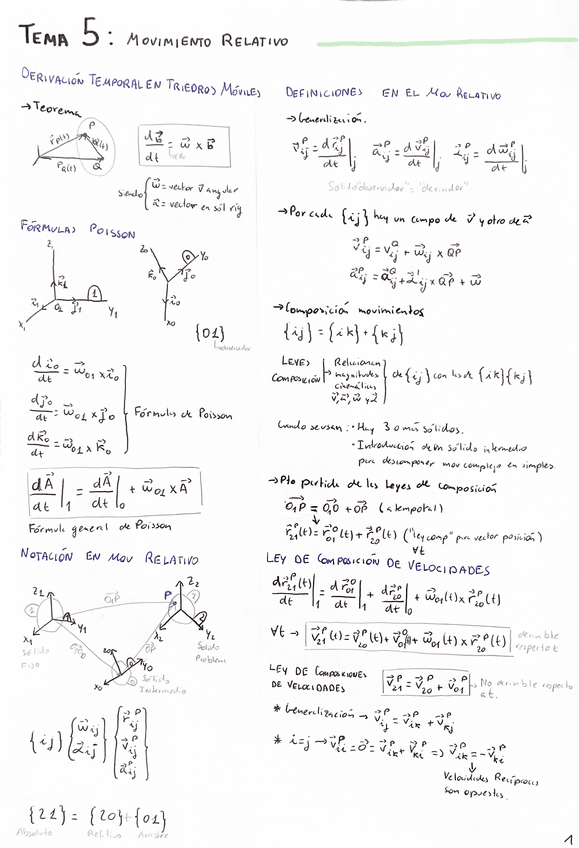 TEMA 5: MOVIMIENTO RELATIVO
DERIVACIÓN TEMPORAL EN TRIEDROS MÓVILES
→ Teorema
P
r_P(t)
Q
r_Q(t)
d𝐁⃗/dt = ω⃗ x B⃗
siendo { ω⃗ = vector v angular
= vector en sól rig
FÓRMULAS POISSON
Z₁
k⃗₁
i⃗₁
O₁
j⃗₁
1
X₁
Y₁
Z₀
Y₀
0
k⃗₀
j⃗₀
i⃗₀
X₀
{01}
d i⃗₀/dt = ω⃗₀₁ x i⃗₀
d j⃗₀/dt = ω⃗₀₁ x j⃗₀
d k⃗₀/dt = ω⃗₀₁ x k⃗₀
Fórmulas de Poisson
dA⃗/dt|₁ = dA⃗/dt|₀ + ω⃗₀₁ x A⃗
Fórmula general de Poisson
NOTACIÓN EN MOV RELATIVO
Z₁
Z₂
P
1
2
X₁
Y₁
Y₂
Sólido
Fijo
Sólido
Problem
Z₀
X₀
Y₀
Sólido
Intermedio
{ij} { ω⃗ij α⃗ij } { r⃗ᴾij v⃗ᴾij a⃗ᴾij }
{21} = {20} + {01}
Absoluto Relativo Arrastre
DEFINICIONES EN EL MOV RELATIVO
→ Generalización.
v⃗ᴾij = d r⃗ᴾij/dt|j a⃗ᴾij = d v⃗ᴾij/dt|j α⃗ij = d ω⃗ij/dt|j
Sólido "observador" = "derivador"
→ Por cada {ij} hay un campo de v⃗ y otro de a⃗
v⃗ᴾij = v⃗ᵠij + ω⃗ij x QP
a⃗ᴾij = a⃗ᵠij + α⃗ij x QP + ω⃗
→ Composición movimientos
{ij} = {ik} + {kj}
LEYES COMPOSICIÓN
Relacionan
magnitudes
cinemáticas
v⃗, a⃗, ω⃗ y α⃗
de {ij} con las de {ik}{kj}
Cuando se usan: · Hay 3 o más sólidos.
· Introducción de un sólido intermedio
para descomponer mov complejo en simples.
→ Pto partida de las Leyes de composición
O₁P = O₁O + OP (atemporal)
r⃗ᴾ₂₁(t) = r⃗⁰₀₁(t) + r⃗ᴾ₂₀(t) ("ley comp" para vector posición)
∀t
LEY DE COMPOSICIÓN DE VELOCIDADES
d r⃗ᴾ₂₁(t)/dt|₁ = d r⃗⁰₀₁/dt|₁ + d r⃗ᴾ₂₀/dt|₀ + ω⃗₀₁(t) x r⃗ᴾ₂₀(t)
∀t → v⃗ᴾ₂₁(t) = v⃗ᴾ₂₀(t) + v⃗⁰₀₁(t) + ω⃗₀₁(t) x r⃗ᴾ₂₀(t) derivible
respecto t
LEY DE COMPOSICIONES
DE VELOCIDADES
v⃗ᴾ₂₁ = v⃗ᴾ₂₀ + v⃗ᴾ₀₁
→ No derivible respecto
a t.
* Generalización → v⃗ᴾij = v⃗ᴾik + v⃗ᴾkj
* i=j → v⃗ᴾii = 0⃗ = v⃗ᴾik + v⃗ᴾki ⇒ v⃗ᴾik = -v⃗ᴾki
Velocidades Recíprocas
son opuestas.
1